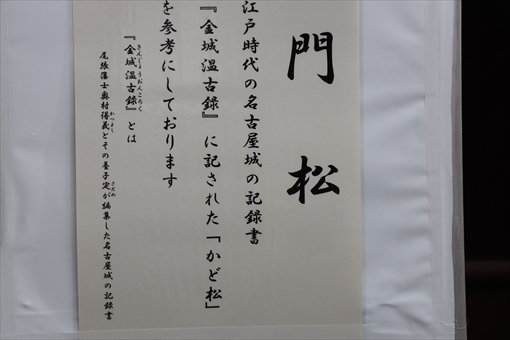 門松
江戸時代の名古屋城の記録書
『金城温古録』に記された「かど松」
を参考にしております
『金城温古録』とは
きんじょうおんころく
尾張藩士奥村得義とその養子定が編集した名古屋城の記録書
かつよし
さだめ